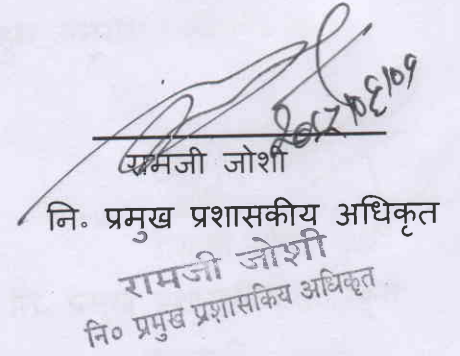 २०८२।०६।०१
रामजी जोशी
नि. प्रमुख प्रशासकीय अधिकृत
रामजी जोशी
नि० प्रमुख प्रशासकिय अधिकृत